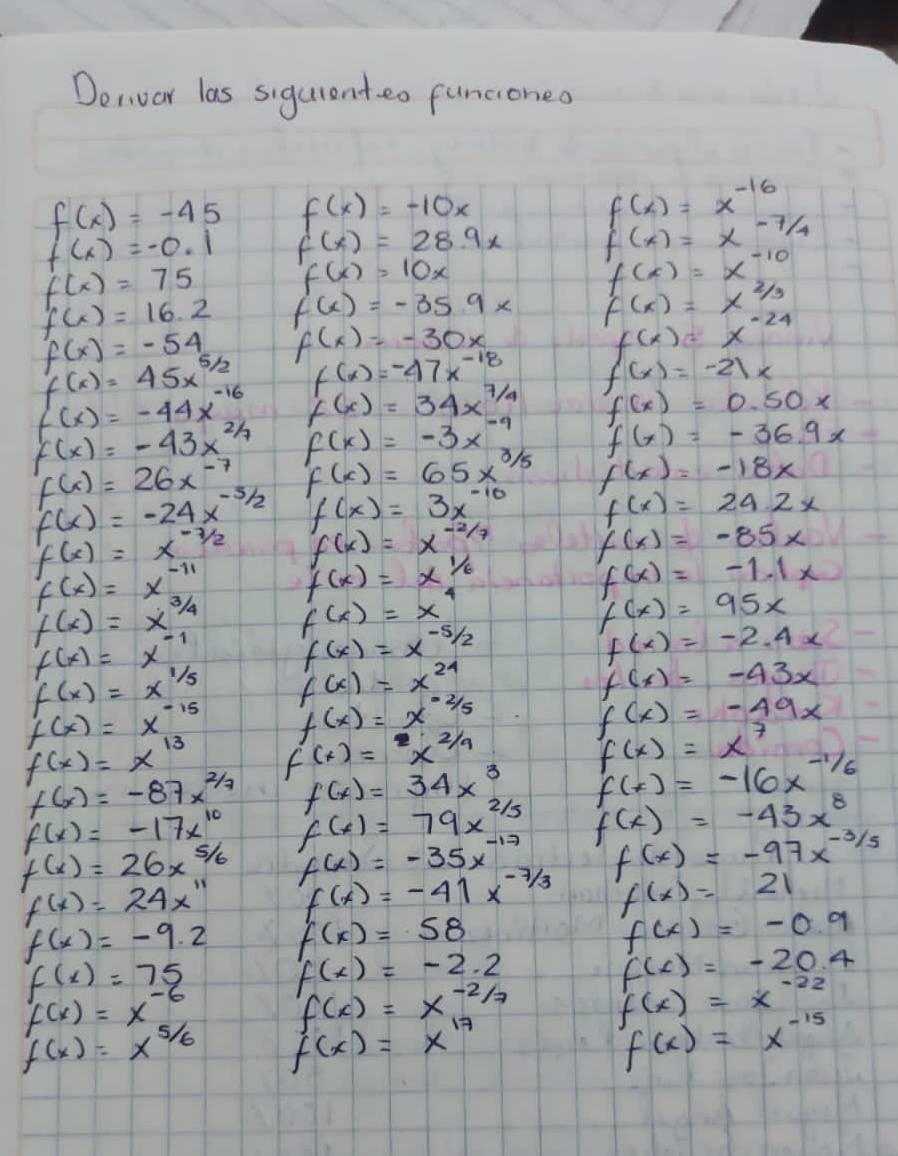 Derivar las siguientes funciones
f(x) = -45
f(x) = -0.1
f(x) = 75
f(x) = 16.2
f(x) = -54
f(x) = 45x^5/2
f(x) = -44x^-16
f(x) = -43x^2/7
f(x) = 26x^-7
f(x) = -24x^-5/2
f(x) = x^-7/2
f(x) = x^-11
f(x) = x^3/4
f(x) = x^-1
f(x) = x^1/5
f(x) = x^-15
f(x) = x^13
f(x) = -87x^2/7
f(x) = -17x^10
f(x) = 26x^5/6
f(x) = 24x^11
f(x) = -9.2
f(x) = 75
f(x) = x^-6
f(x) = x^5/6
f(x) = -10x
f(x) = 28.9x
f(x) = 10x
f(x) = -35.9x
f(x) = -30x
f(x) = -47x^-18
f(x) = 34x^7/4
f(x) = -3x^-9
f(x) = 65x^3/5
f(x) = 3x^-10
f(x) = x^-2/7
f(x) = x^1/6
f(x) = x^4
f(x) = x^-5/2
f(x) = x^24
f(x) = x^-2/5
f(x) = x^2/9
f(x) = 34x^3
f(x) = 79x^2/5
f(x) = -35x^-17
f(x) = -41x^-7/3
f(x) = 58
f(x) = -2.2
f(x) = x^-2/7
f(x) = x^17
f(x) = x^-16
f(x) = x^-7/4
f(x) = x^-10
f(x) = x^2/3
f(x) = x^-24
f(x) = -21x
f(x) = 0.50x
f(x) = -36.9x
f(x) = -18x
f(x) = 24.2x
f(x) = -85x
f(x) = -1.1x
f(x) = 95x
f(x) = -2.4x
f(x) = -43x
f(x) = -49x
f(x) = x^7
f(x) = -16x^-1/6
f(x) = -43x^8
f(x) = -97x^-3/5
f(x) = 21
f(x) = -0.9
f(x) = -20.4
f(x) = x^-22
f(x) = x^-15